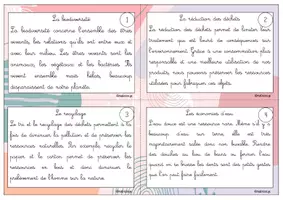 La biodiversité
1
La biodiversité concerne l'ensemble des êtres
vivants, les relations qu'ils ont entre eux et
avec leur milieu. Les êtres vivants sont les
animaux, les végétaux et les bactéries. Ils
vivent ensemble mais hélas, beaucoup
disparaissent de notre planète.
La réduction des déchets
2
La réduction des déchets permet de limiter leur
traitement qui est lourd de conséquences sur
l'environnement. Grâce à une consommation plus
responsable et une meilleure utilisation de nos
produits, nous pouvons préserver les ressources
utilisées pour fabriquer ces objets.
Le recyclage
3
Le tri et le recyclage des déchets permettent à la
fois de diminuer la pollution et de préserver les
ressources naturelles. Par exemple, recycler le
papier et le carton permet de préserver les
ressources en bois et donc diminuer le
prélèvement de l'homme sur la nature.
Les économies d'eau
4
L'eau douce est une ressource rare. Même s'il y a
beaucoup d'eau sur terre, elle est très
majoritairement salée donc non buvable. Prendre
des douches au lieu de bains ou fermer l'eau
quand on se brosse les dents sont des petits gestes
que l'on peut faire facilement.